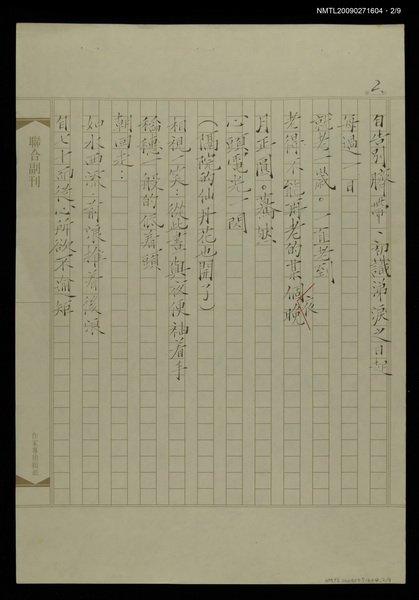 NMTL20090271604，2/9
2
自告別臍帶、初識涕淚之日起
每過一日
就老一歲。一直老到
老得不祖再老的某個夜
月正圓。驀然
心頭電光一閃
（隔院的仙丹花也開了）
相視一笑：從此晝與夜便袖着手
稻穗一般的低着頭
朝回走：
如水西流，前浪推着後浪
自七十而從心所欲不逾矩
聯合副刊
作家專用稿紙
NMTL20090271604 2/9